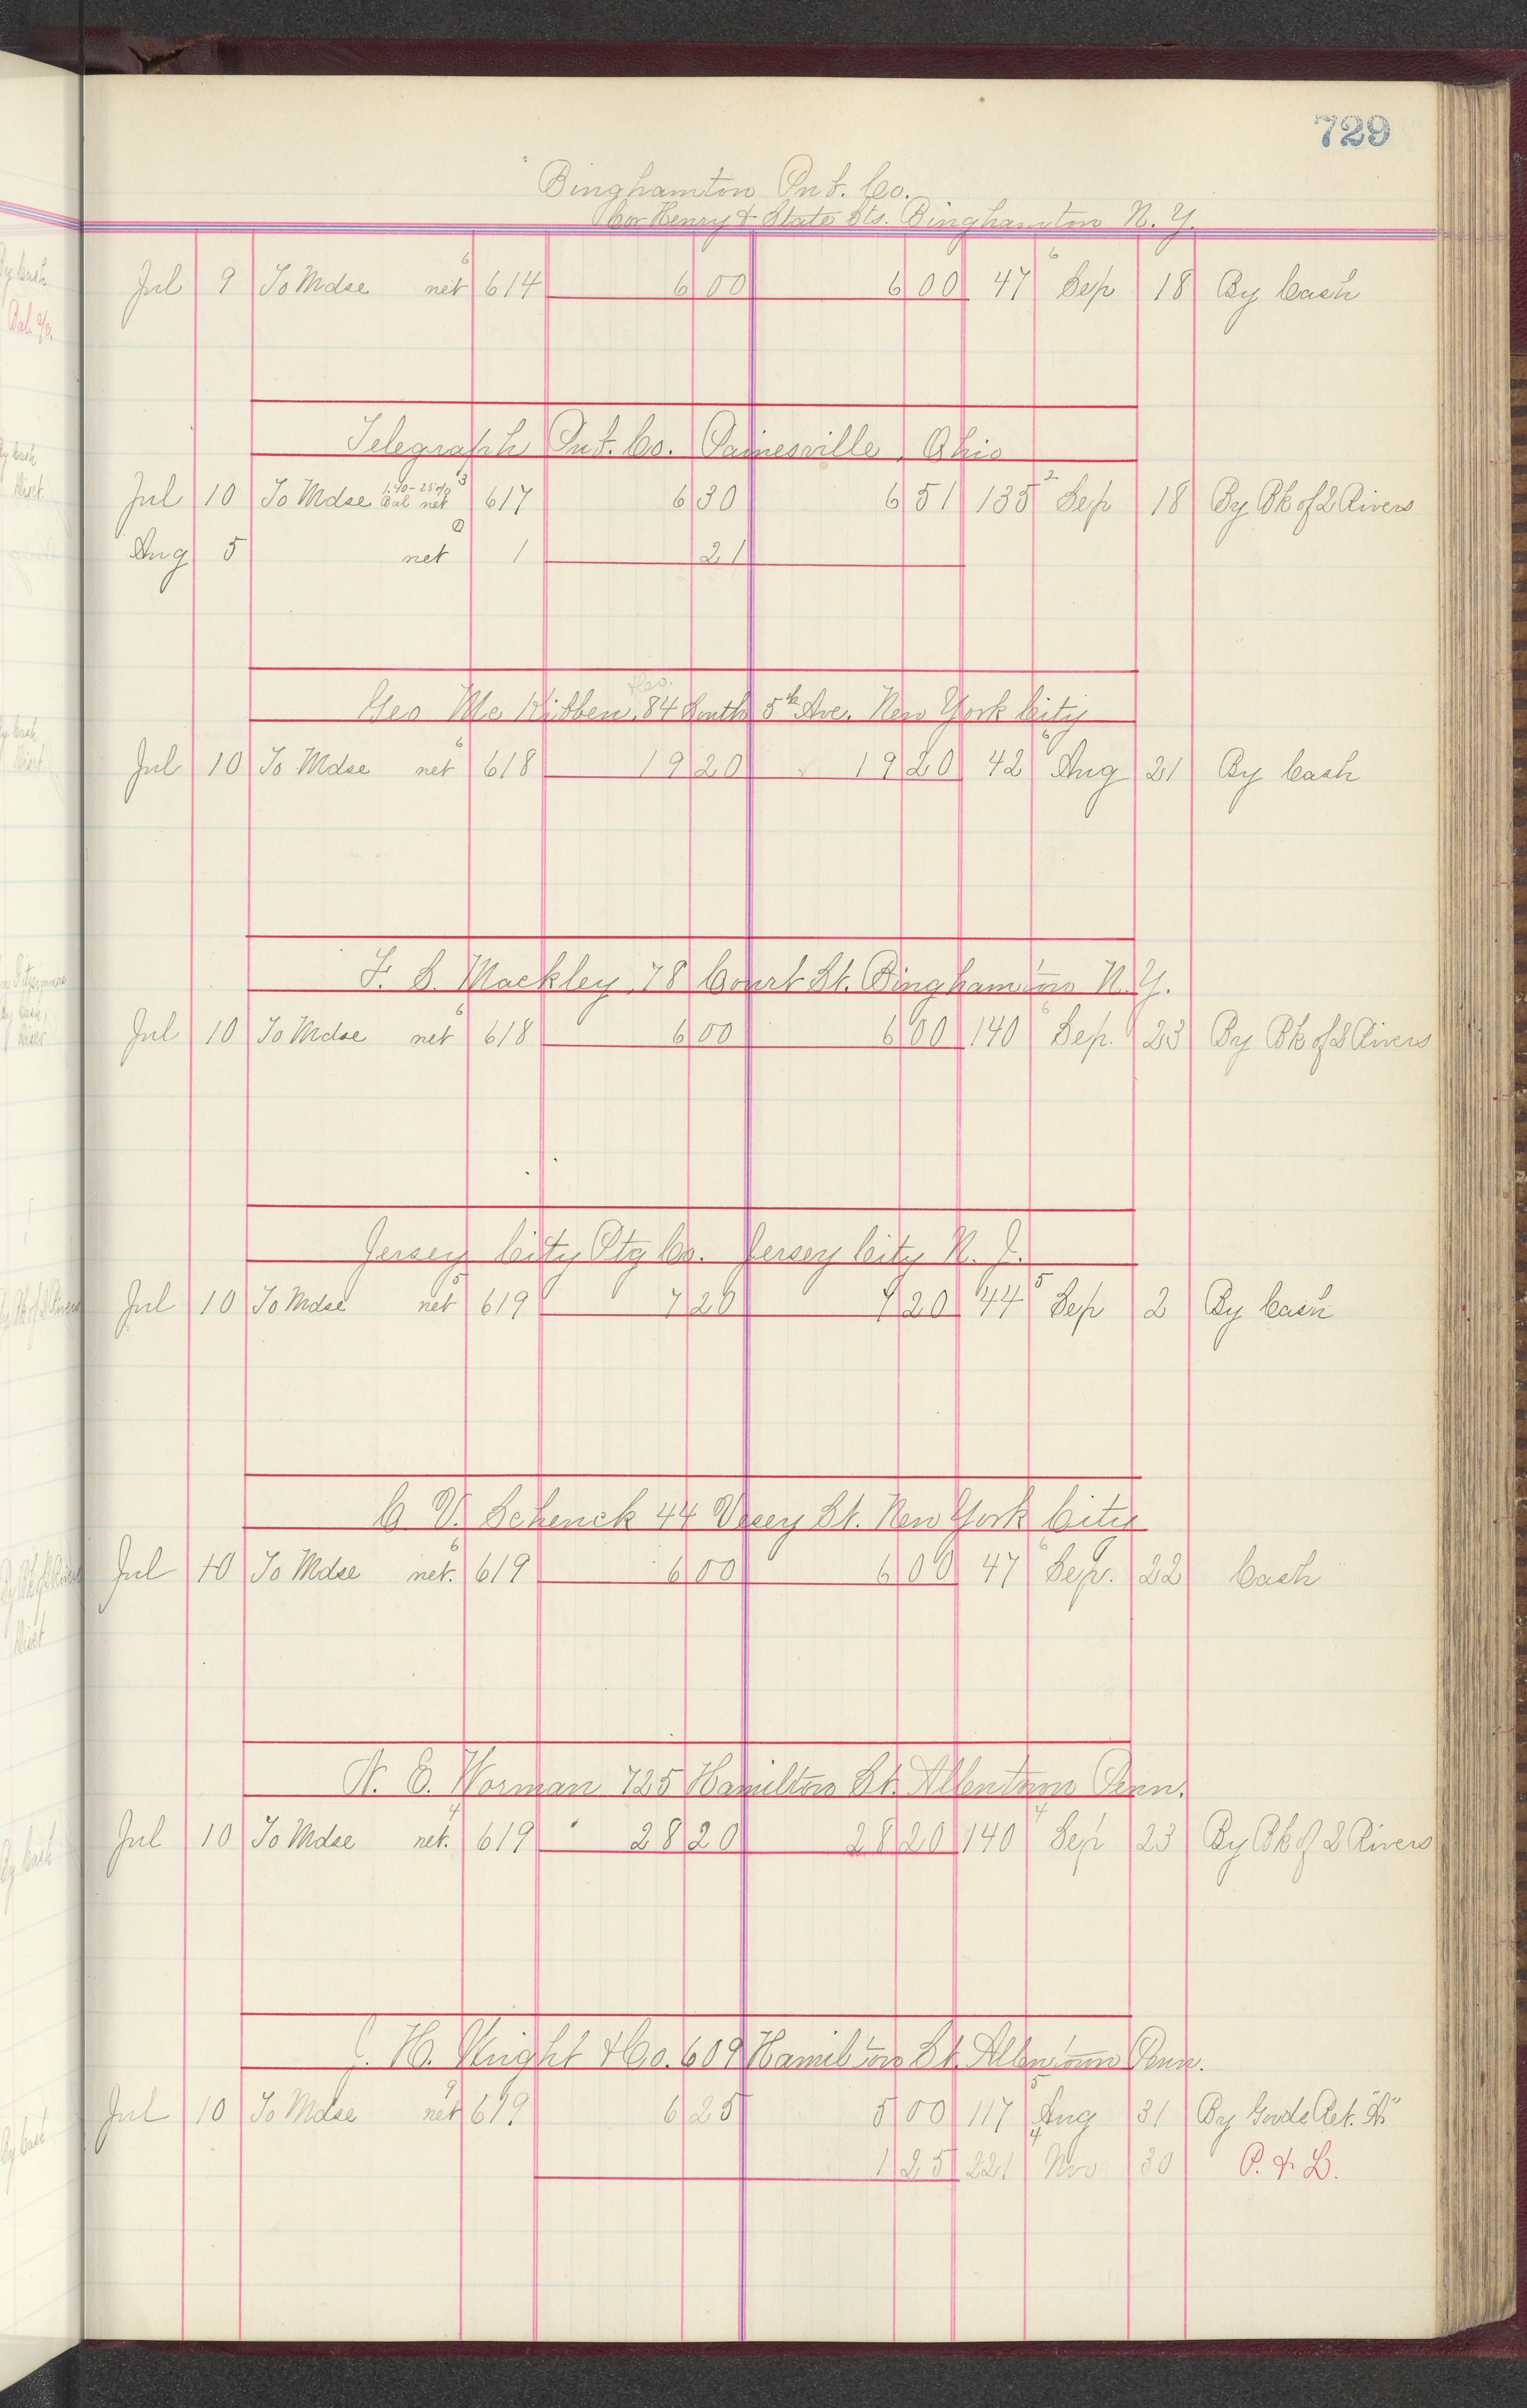 729
Binghamton Pub. Co.
Cor Henry & State Sts. Binghamton N. Y.
Jul 9 To Mdse net 6 614 6 00 6 00 47 6 Sep 18 By Cash
Telegraph Pub. Co. Painesville, Ohio
Jul 10 To Mdse 1.40-25% Bal net 3 617 6 30 6 51 135 2 Sep 18 By Bk of 2 Rivers
Aug 5 net 1 21
Geo Mc Kibben, 84 South 5th Ave. New York City
Jul 10 To Mdse net 6 618 19 20 19 20 42 6 Aug 21 By Cash
F. S. Mackley 78 Court St. Binghamton N.Y.
Jul 10 To Mdse net 6 618 6 00 6 00 140 Sep. 23 By Bk of 2 Rivers
Jersey City Ptg Co. Jersey City N. J.
Jul 10 To Mdse net 5 619 7 20 7 20 44 5 Sep 2 By Cash
C V. Schenck 44 Vesey St. New York City
Jul 10 To Mdse net. 6 619 6 00 6 00 47 6 Sep. 22 Cash
N. E. Worman 725 Hamilton St. Allentown Penn.
Jul 10 To Mdse net. 4 619 28 20 28 20 140 4 Sep 23 By Bk of 2 Rivers
H. Knight & Co. 609 Hamilton St. Allentown Penn.
Jul 10 To Mdse net 9 619 6 25 5 00 117 5 Aug 31 By Goods Ret. "A"
1 25 221 4 Nov 30 P. & L.